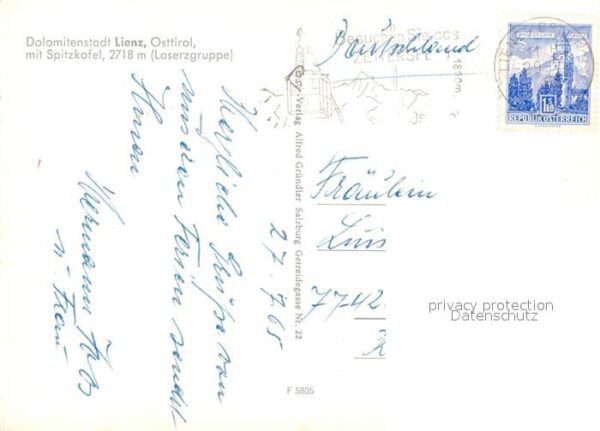 Dolomitenstadt Lienz, Osttirol,
mit Spitzkofel, 2718 m (Laserzgruppe)
Herzliche Grüße von
unseren Ferien sendet
Ihnen
Hermann
u. Frau
27.7.65
Verlag Alfred Gründler Salzburg Getreidegasse Nr. 22
F 5805
Besuchen Sie das
1810m
Deutschland
LIENZ
1.80
REPUBLIK ÖSTERREICH
Fräulein
Luis
7742
privacy protection
Datenschutz